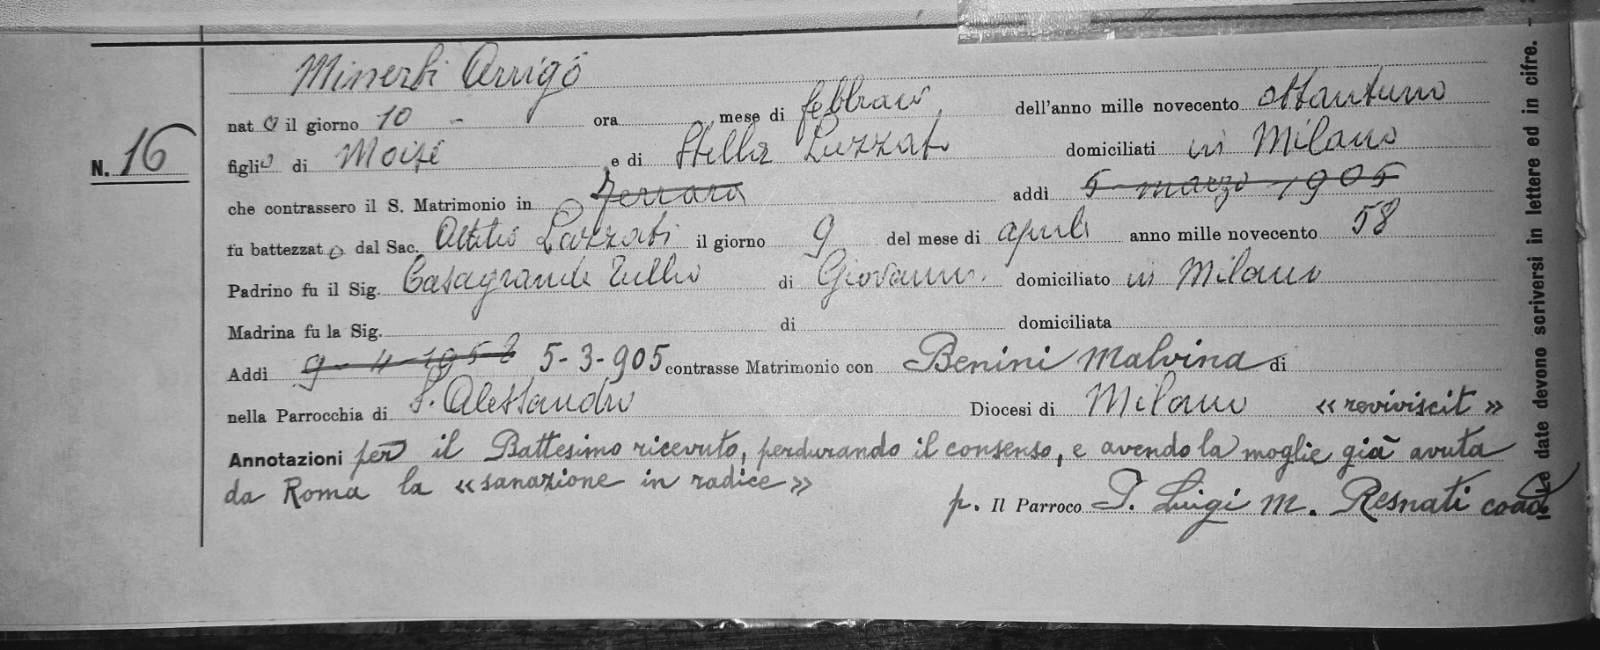 Minerbi Arrigo
nato il giorno 10 - ora mese di febbraio dell'anno mille novecento ottantuno
N. 16
figlio di Moisé e di Stella Luzzato domiciliati in Milano
che contrassero il S. Matrimonio in Ferrara addi 5 marzo 1905
fu battezzato dal Sac. Attilio Lazzati il giorno 9 del mese di aprile anno mille novecento 58
Padrino fu il Sig. Casagrande Tullio di Giovanni. domiciliato in Milano
Madrina fu la Sig. di domiciliata
Addi 9-4-1958 5-3-905 contrasse Matrimonio con Benini Malvina di
nella Parrocchia di S. Alessandro Diocesi di Milano « reviviscit »
Annotazioni per il Battesimo ricevuto, perdurando il consenso, e avendo la moglie già avuta
da Roma la « sanazione in radice »
p. Il Parroco P. Luigi M. Resnati coad.
date devono scriversi in lettere ed in cifre. -